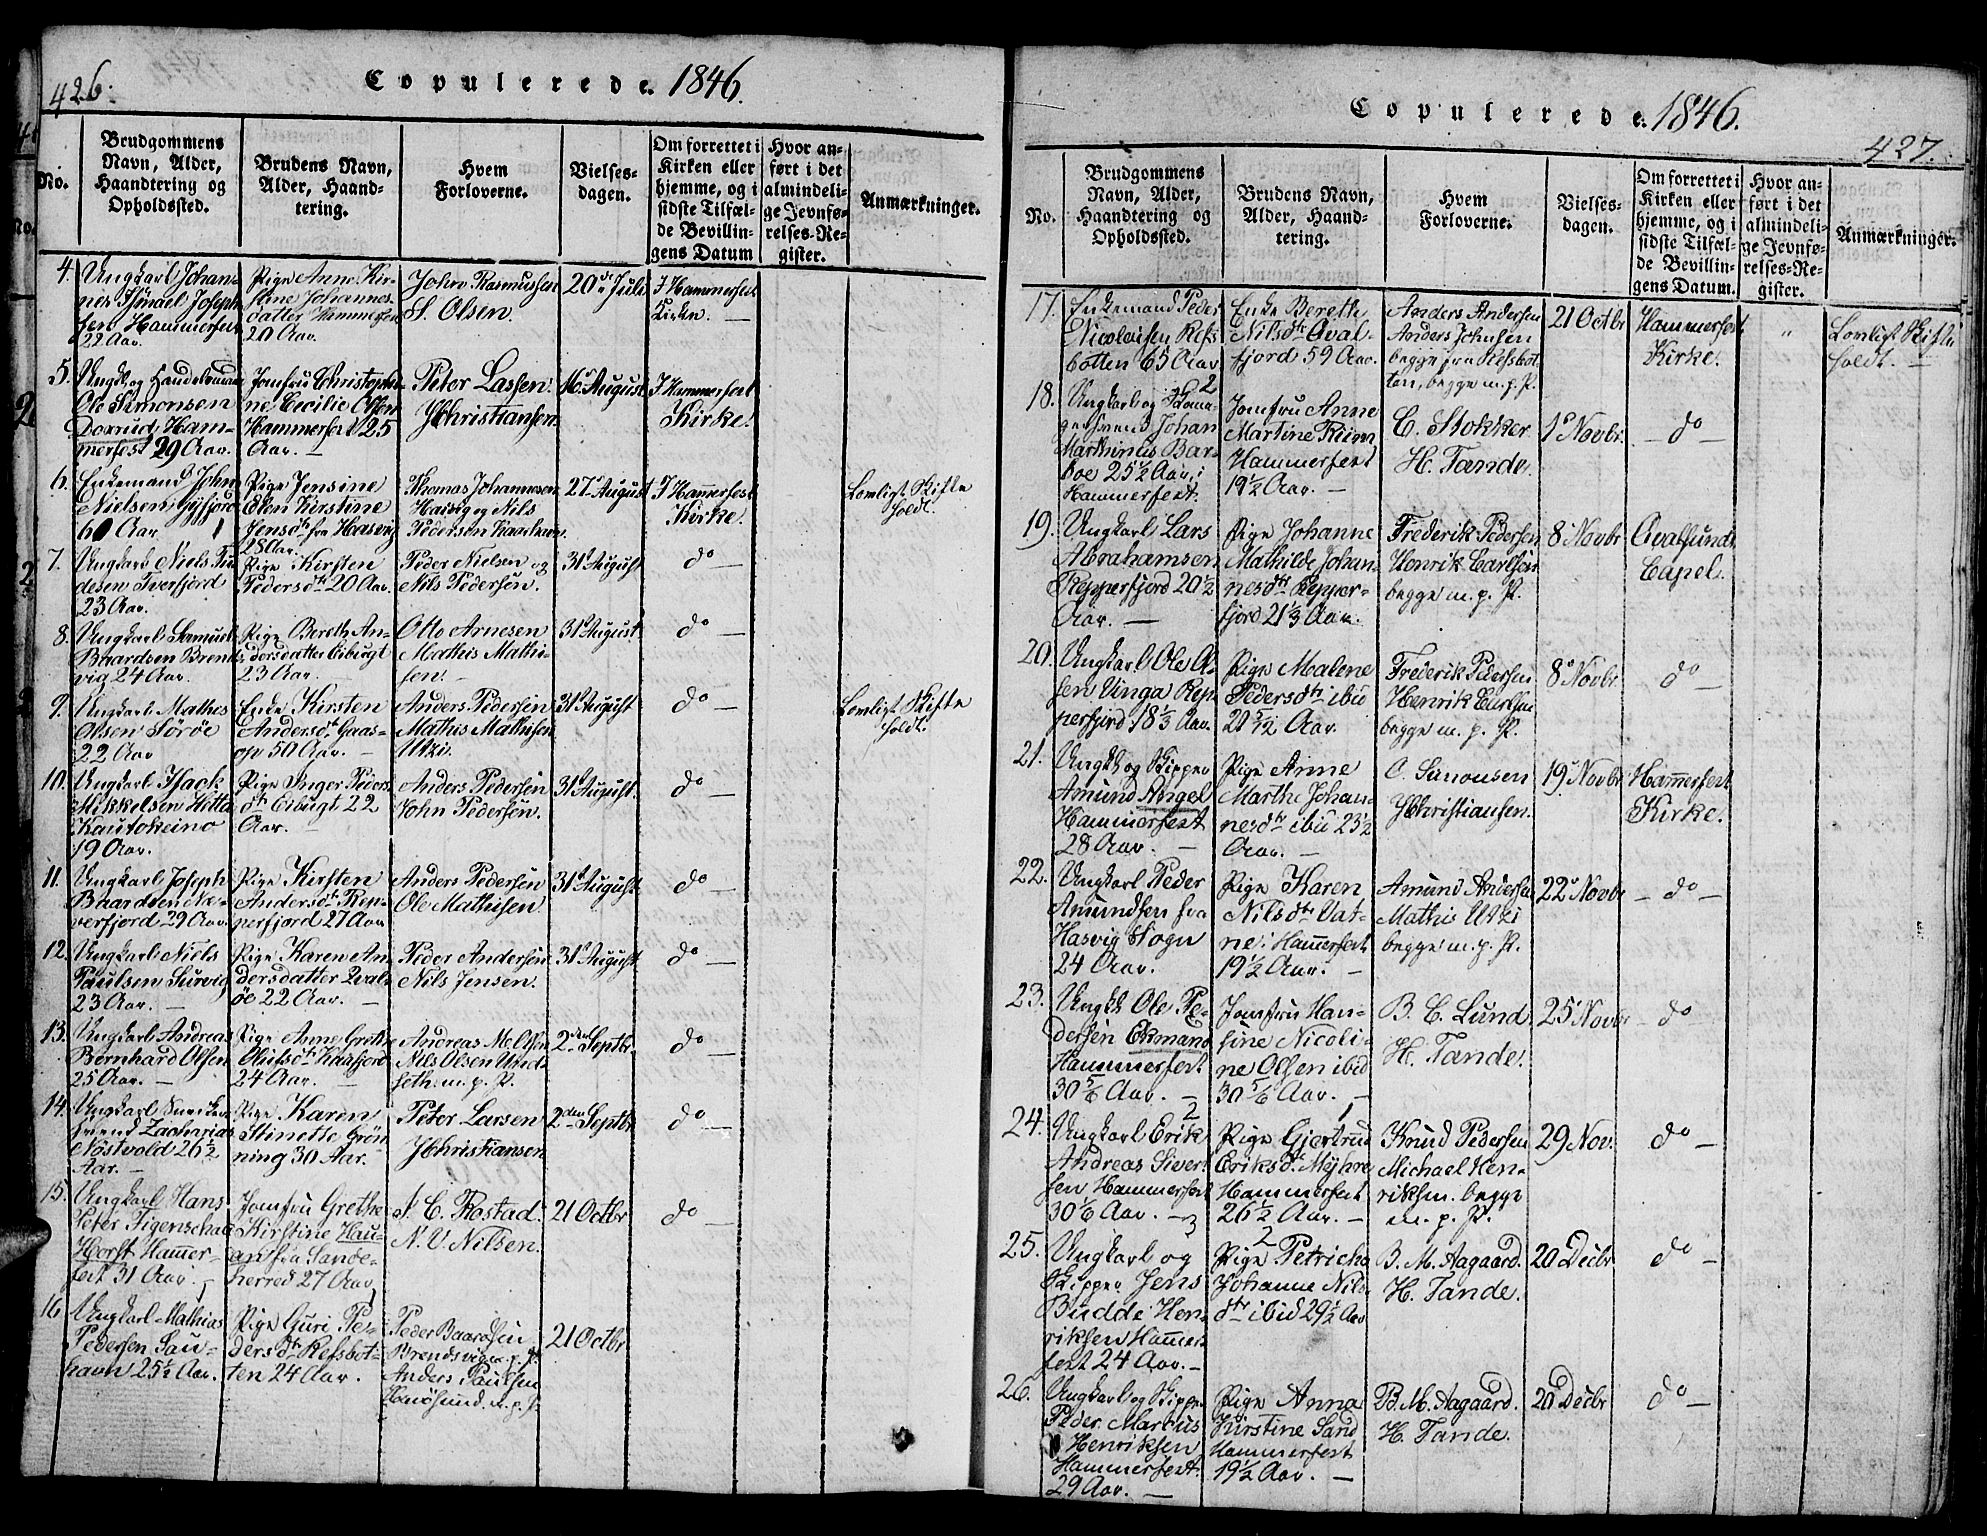 426.
Copulerede. 1846.
No.
Brudgommens Navn, Alder, Haandtering og Opholdssted.
Brudens Navn, Alder, Haandtering.
Hvem Forloverne.
Vielsesdagen.
Om forrettet i Kirken eller hjemme, og i sidste Tilfælde Bevillingens Datum
Hvor anført i det almindelige Jevnførelses-Register.
Anmærkninger.
4. Ungkarl Johannes Ismael Josephsen Hammerfest 22 Aar.
Pige Anne Kirstine Johannesdatter Hammerfest 20 Aar.
John Rasmussen
S. Olsen.
20de Juli
I Hammerfest Kirke. —
5. Ungk. og Handelsmand Ole Simonsen Doxrud, Hammerfest 29 Aar.
Jomfru Christophine Cecilie Olsen Hammerfest 25 Aar. —
Peter Lassen.
J Christiansen.
16 August
I Hammerfest Kirke.
6. Enkemand John Nielsen, 60 Aar
Pige Jensine Elen Kirstine Jensdtr fra Hasvig 28 Aar.
Thomas Johannesen Hasvig og Nils Pedersen
27 August
I Hammerfest Kirke.
Lovligt Skifte holdt.
7. Ungkarl Niels Tudesen Tverfjord 23 Aar
Pige Kirsten Pedersdtr 20 Aar.
Peder Nielsen og
Nils Pedersen.
31 August
do
8. Ungkarl Samuel Baardsen Brendsvig 24 Aar.
Pige Bereth Andersdatter Eibugt 23 Aar.
Otto Arnesen
Mathis Mathisen.
31 August
do —
9. Ungkarl Mathes Olsen Sørøe 22 Aar
Enke Kirsten Andersdtr Gaasop 50 Aar. —
Anders Pedersen
Mathis Mathisen Utzi.
31 August
do —
Lovligt Skifte holdt.
10. Ungkarl Isack Mikkelsen Hætta Kautokeino 19 Aar.
Pige Inger Pedersdtr Eibugt 22 Aar. —
Anders Pedersen
John Pedersen.
31 August.
do —
11. Ungkarl Joseph Baardsen Neverfjord 29 Aar.
Pige Kirsten Andersdtr Repperfjord 27 Aar
Anders Pedersen
Ole Mathisen.
31 August.
do —
12. Ungkarl Niels Paulsen Survig 23 Aar. —
Pige Karen Andersdatter Qvaløe 22 Aar. —
Peder Andersen
Nils Jensen.
31 August
do —
13. Ungkarl Andreas Bernhard Olsen 25 Aar. —
Pige Anne Grethe Olufsdtr Kaafjord 24 Aar. —
Andreas M. Olsen
Nils Olsen m. p. P.
2den Septbr.
do —
14. Ungkarl Zacharias Nøstvold 26½ Aar. —
Pige Karen Stinette Grønning 30 Aar.
Peter Larsen
J Christiansen
2den Septbr
do —
15. Ungkarl Hans Peter Tigenschau Horst Hammerfest 31 Aar.
Jomfru Grethe Kirstine Hauan fra Sandeherred 27 Aar,
S. C. Rostad.
N. V. Nilsen.
21 Octbr
do —
16 Ungkarl Mathias Pedersen Sauhavn 25½ Aar.
Pige Guri Pedersdtr Refsbotten 24 Aar.
Peder Baardsen Brendsvig m. p. P.
Anders Paulsen m. p. P.
21 Octbr
Copulerede. 1846.
427.
No.
Brudgommens Navn, Alder, Haandtering og Opholdssted.
Brudens Navn, Alder, Haandtering.
Hvem Forloverne.
Vielsesdagen.
Om forrettet i Kirken eller hjemme, og i sidste Tilfælde Bevillingens Datum.
Hvor anført i det almindelige Jevnførelses-Register.
Anmærkninger.
17. Enkemand Peder Nicolaisen Refsbotten 65 Aar
Enke Bereth Nilsdtr Qvalfjord 59 Aar.
Anders Andersen
Anders Johnsen begge fra Refsbotten, begge m. p. P.
21 Octbr
Hammerfest Kirke.
"
Lovligt Skifte holdt. —
18. Ungkarl og Johan Marthinus Barboe 25½ Aar; Hammerfest.
Jomfru Anne Martine Riim Hammerfest 19½ Aar. —
C. Stokker
H. Tande.
1 Novbr.
— do —
19. Ungkarl Lars Abrahamsen Repperfjord 20½ Aar. —
Pige Johanne Mathilde Johannesdtr Repperfjord 21⅓ Aar.
Frederik Pedersen
Henrik Carlsen begge m. p. P.
8 Novbr
Qvalsunds Capel.
20. Ungkarl Ole Olsen Vinga Repperfjord 18⅓ Aar.
Pige Malene Pedersdtr ibid 21 5/12 Aar.
Frederik Pedersen
Henrik Carlsen begge m. p. P.
8 Novbr
do —
21. Ungk. og Skipper Amund Angel Hammerfest 28 Aar. —
Pige Anne Marthe Johannesdtr ibid 23½ Aar. —
O. Simonsen
J Christiansen.
19 Novbr
Hammerfest Kirke.
22. Ungkarl Peder Amundsen fra Hasvig Sogn 24 Aar.
Pige Karen Nilsdtr Vatne; Hammerfest 19½ Aar. —
Amund Andersen
Mathis Utzi begge m. p. P.
22 Novbr
— do —
23. Ungk. Ole Pedersen Ekmand Hammerfest 30⅚ Aar. —
Jomfru Hansine Nicoline Olsen ibid 30⅚ Aar. —
B. C. Lund.
H. Tande.
25 Novbr
— do
24. Ungkarl Erik Andreas Sivertsen Hammerfest 30⅙ Aar. —
Pige Gjertrud Eriksdtr Myhre Hammerfest 26½ Aar. —
Knud Pedersen
Michael Henriksen. begge m. p. P.
29 Nov.
do —
25. Ungkarl og Skipper Jens Budde Henriksen Hammerfest 24 Aar. —
Pige Petricha Johanne Nilsdtr ibid 29½ Aar
B. M. Aagaard.
H. Tande.
20 Decbr
do —
26. Ungkarl og Skipper Peder Marcus Henriksen Hammerfest. 29 Aar. —
Pige Anna Kirstine Sand Hammerfest 19½ Aar. —
B. M. Aagaard.
H. Tande.
20 Decbr
do —